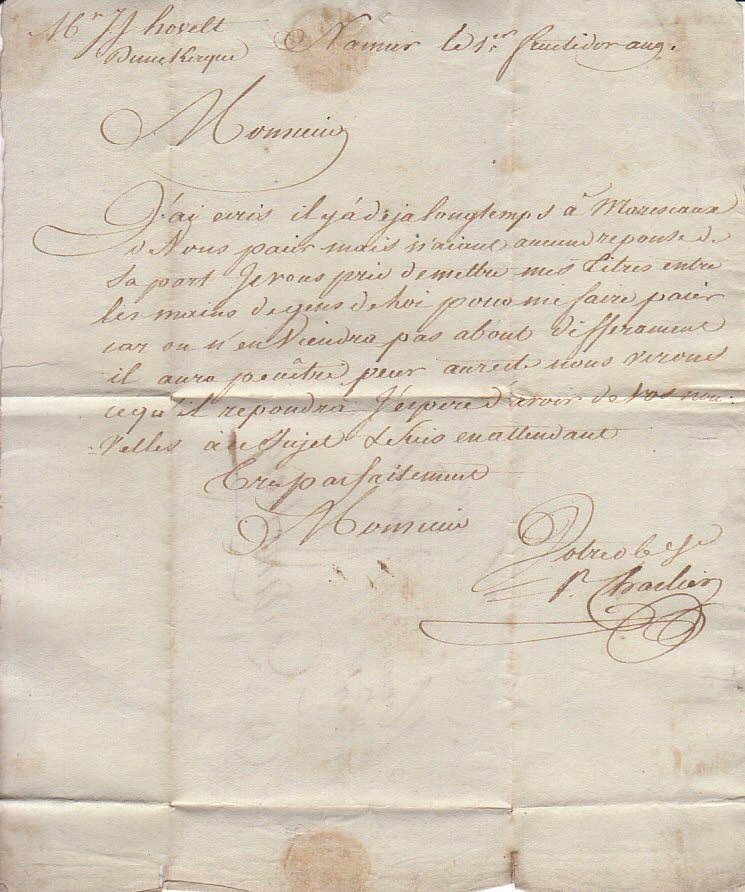 Mr JJ hovelt Namur le 1er fructidor an 9.
Dunkerque
Monsieur
J'ai ecris il y á deja longtemps â Marescaux
de Nous paier mais n'aiant aucune reponse de
sa part Je vous prie de mettre mes titres entre
les mains de gens de loi pour me faire paier
car on n'en viendra pas about differament
il aura peutêtre peur aureste nous verons
cequ'il repondra J'espere d'avoir de vos nou-
velles à ce Sujet & Suis en attendant
tres parfaitement
Monsieur
Votre ob Sr
Pr. Charlier